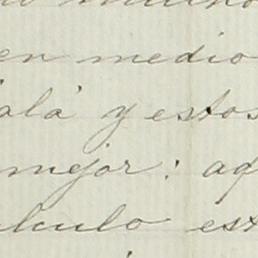 en medio
alá y estos
mejor: aq
lculo est